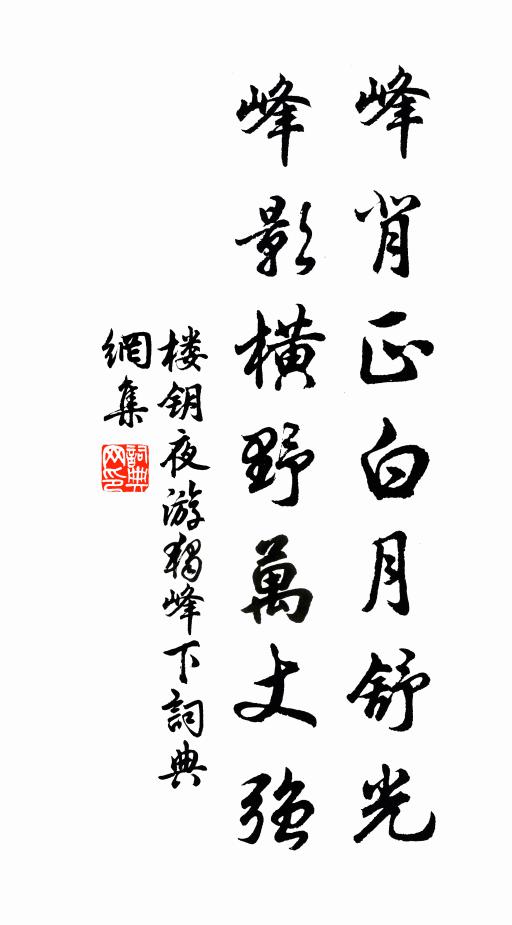 峰背正白月舒光
峰影橫野萬丈強
楼钥夜游獨峰下詞典
網集
詞典
网印